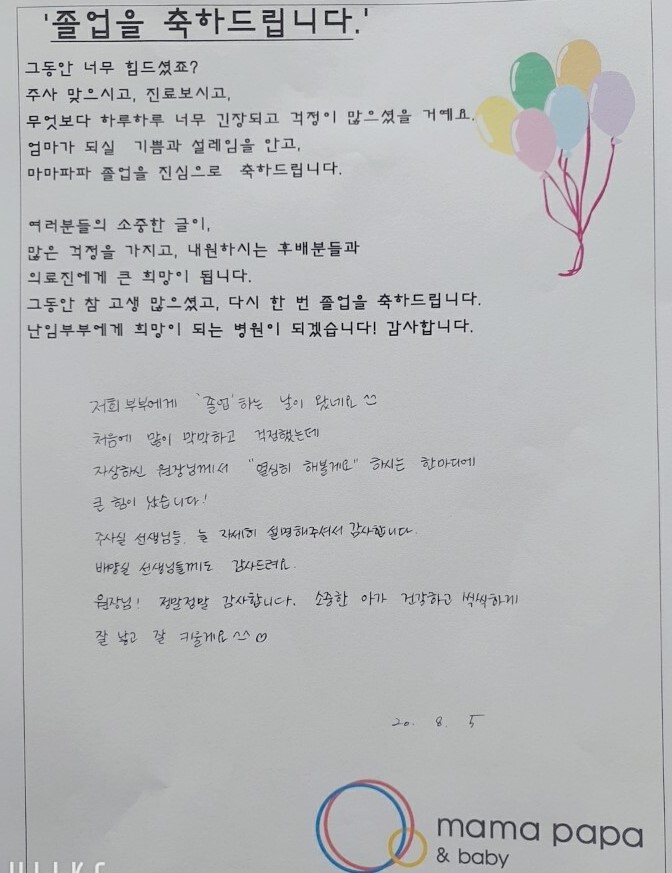 '졸업을 축하드립니다.'
그동안 너무 힘드셨죠?
주사 맞으시고, 진료보시고,
무엇보다 하루하루 너무 긴장되고 걱정이 많으셨을 거예요.
엄마가 되실 기쁨과 설레임을 안고,
마마파파 졸업을 진심으로 축하드립니다.
여러분들의 소중한 글이,
많은 걱정을 가지고, 내원하시는 후배분들과
의료진에게 큰 희망이 됩니다.
그동안 참 고생 많으셨고, 다시 한 번 졸업을 축하드립니다.
난임부부에게 희망이 되는 병원이 되겠습니다! 감사합니다.
저희 부부에게 '졸업'하는 날이 왔네요 ^^
처음에 많이 막막하고 걱정했는데
자상하신 원장님께서 "열심히 해볼게요" 하시는 한마디에
큰 힘이 났습니다!
주사실 선생님들, 늘 자세히 설명해주셔서 감사합니다.
배양실 선생님들께도 감사드려요.
원장님! 정말정말 감사합니다. 소중한 아가 건강하고 씩씩하게
잘 낳고 잘 키울게요 ^^ ♡
20. 8. 5
mama papa
& baby